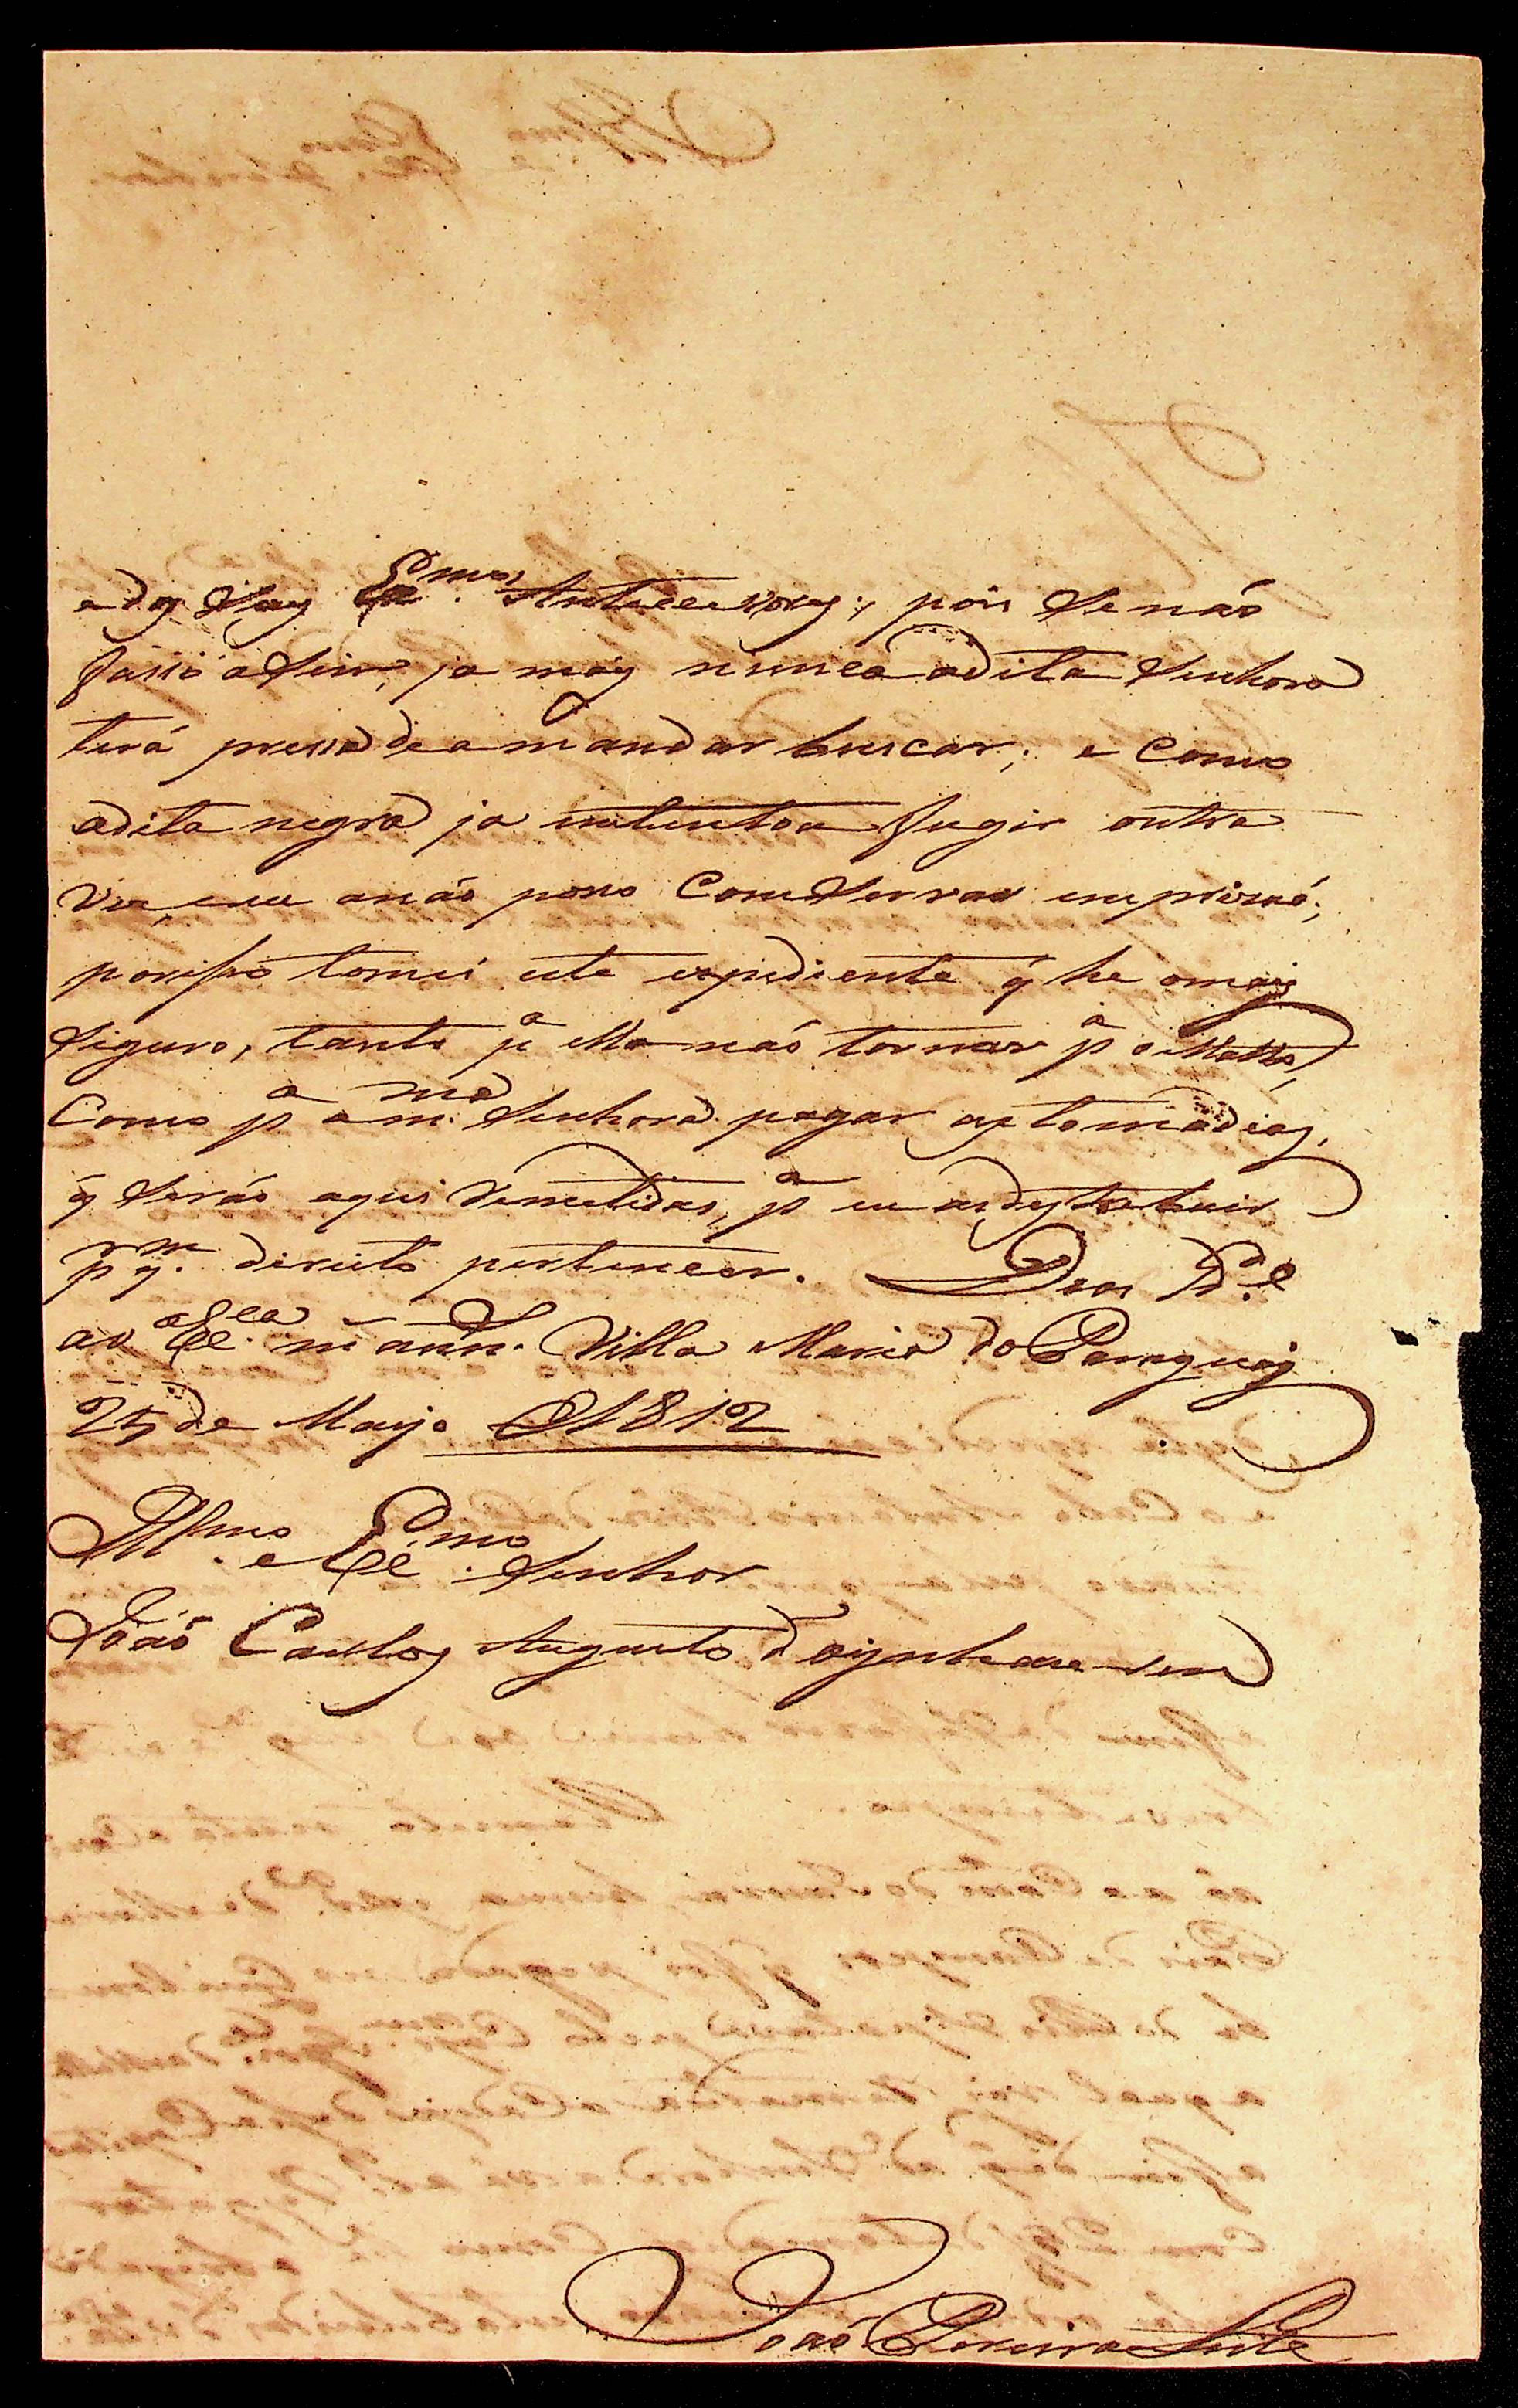 e dos Seus Ex.mos Antecessores; pois se não
fasso aSim, ja mais nunca adita Senhora
terá pressa de amandar buscar; e Como
adita negra ja intentou fugir outra
Vez, eu anão posso Comservar em prizaó;
porisso tomei este expediente q̃ he omais
Siguro, tanto p.a ella naó tornar p.a o Matto,
Como p.a am.ma Senhora pagar as tomadias,
q̃ Seráo aqui Remetidas, p.a eu as destrebuir
p.r q.m direito pertencer. Deos G.de
av Ex.ca m. ann. Villa Maria do Paraguay
25 de Mayo D1812
Ill.mo e Ex.mo Senhor
Joaó Carlos Augusto d'Oyenhausen
Joaó Pereira Leite